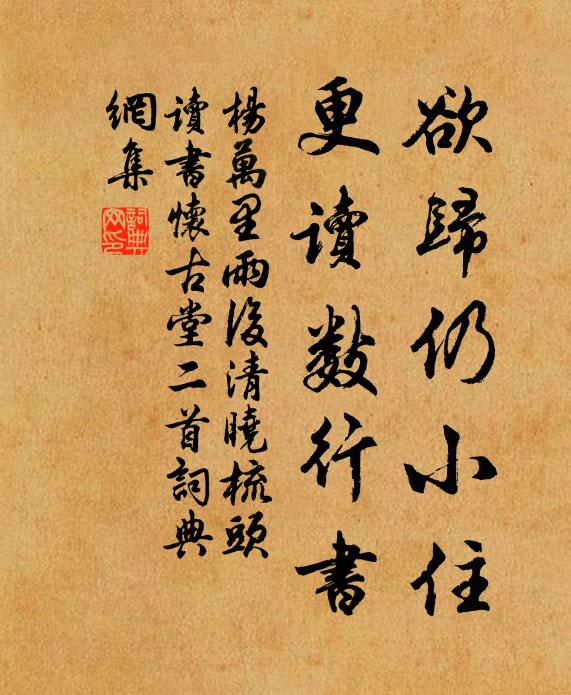 欲歸仍小住
更讀數行書
楊萬里雨後清曉梳頭
讀書懷古堂二首詞典
網集
詞典
网印